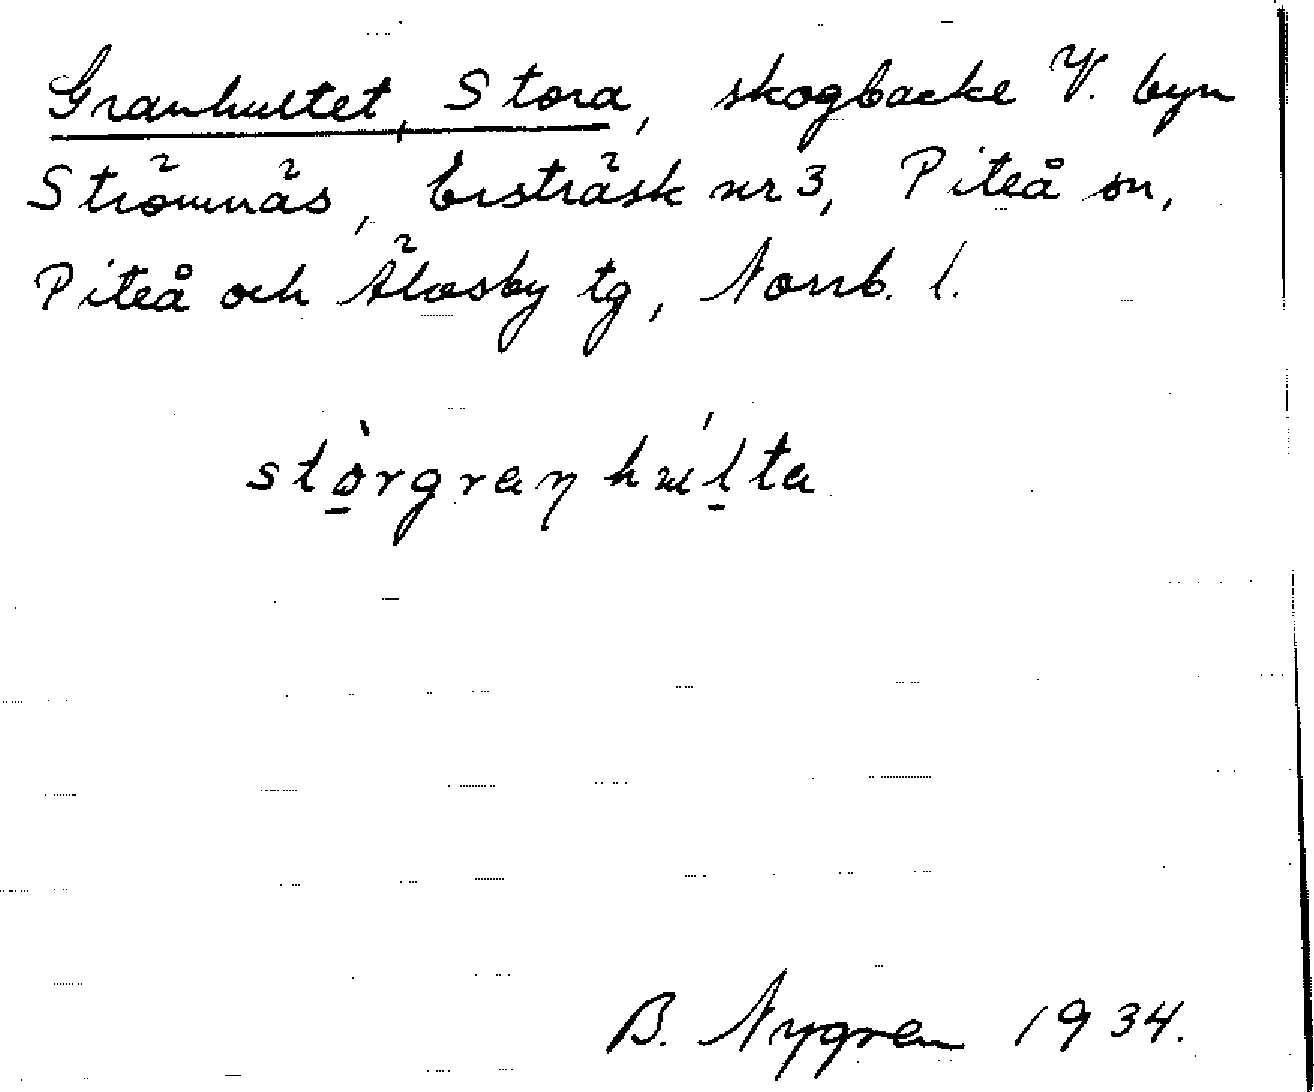 Granhultet, Stora, skogbacke V. byn
Strömnäs, Ersträsk nr 3, Piteå sn,
Piteå och Älvsby tg, Norrb. l.
stòrgranhúlta
B. Nygren 1934.